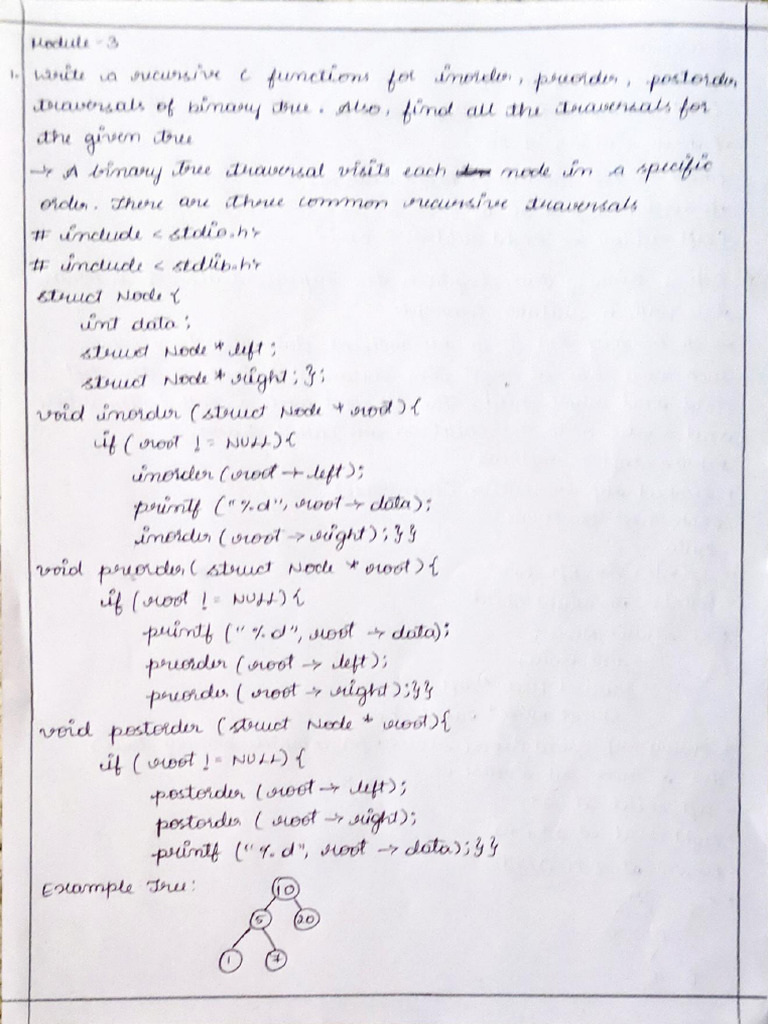 Module - 3
1. Write a recursive C functions for inorder, preorder, postorder
traversals of binary tree. Also, find all the traversals for
the given tree
→ A binary tree traversal visits each node in a specific
order. There are three common recursive traversals
# include < stdio.h>
# include < stdlib.h>
struct Node {
int data;
struct Node * left;
struct Node * right; };
void inorder (struct Node * root) {
if (root != NULL) {
inorder (root → left);
printf ("%d", root → data);
inorder (root → right); } }
void preorder (struct Node * root) {
if (root != NULL) {
printf ("%d", root → data);
preorder (root → left);
preorder (root → right); } }
void postorder (struct Node * root) {
if (root != NULL) {
postorder (root → left);
postorder (root → right);
printf ("%d", root → data); } }
Example Tree:
10
5 20
1 7